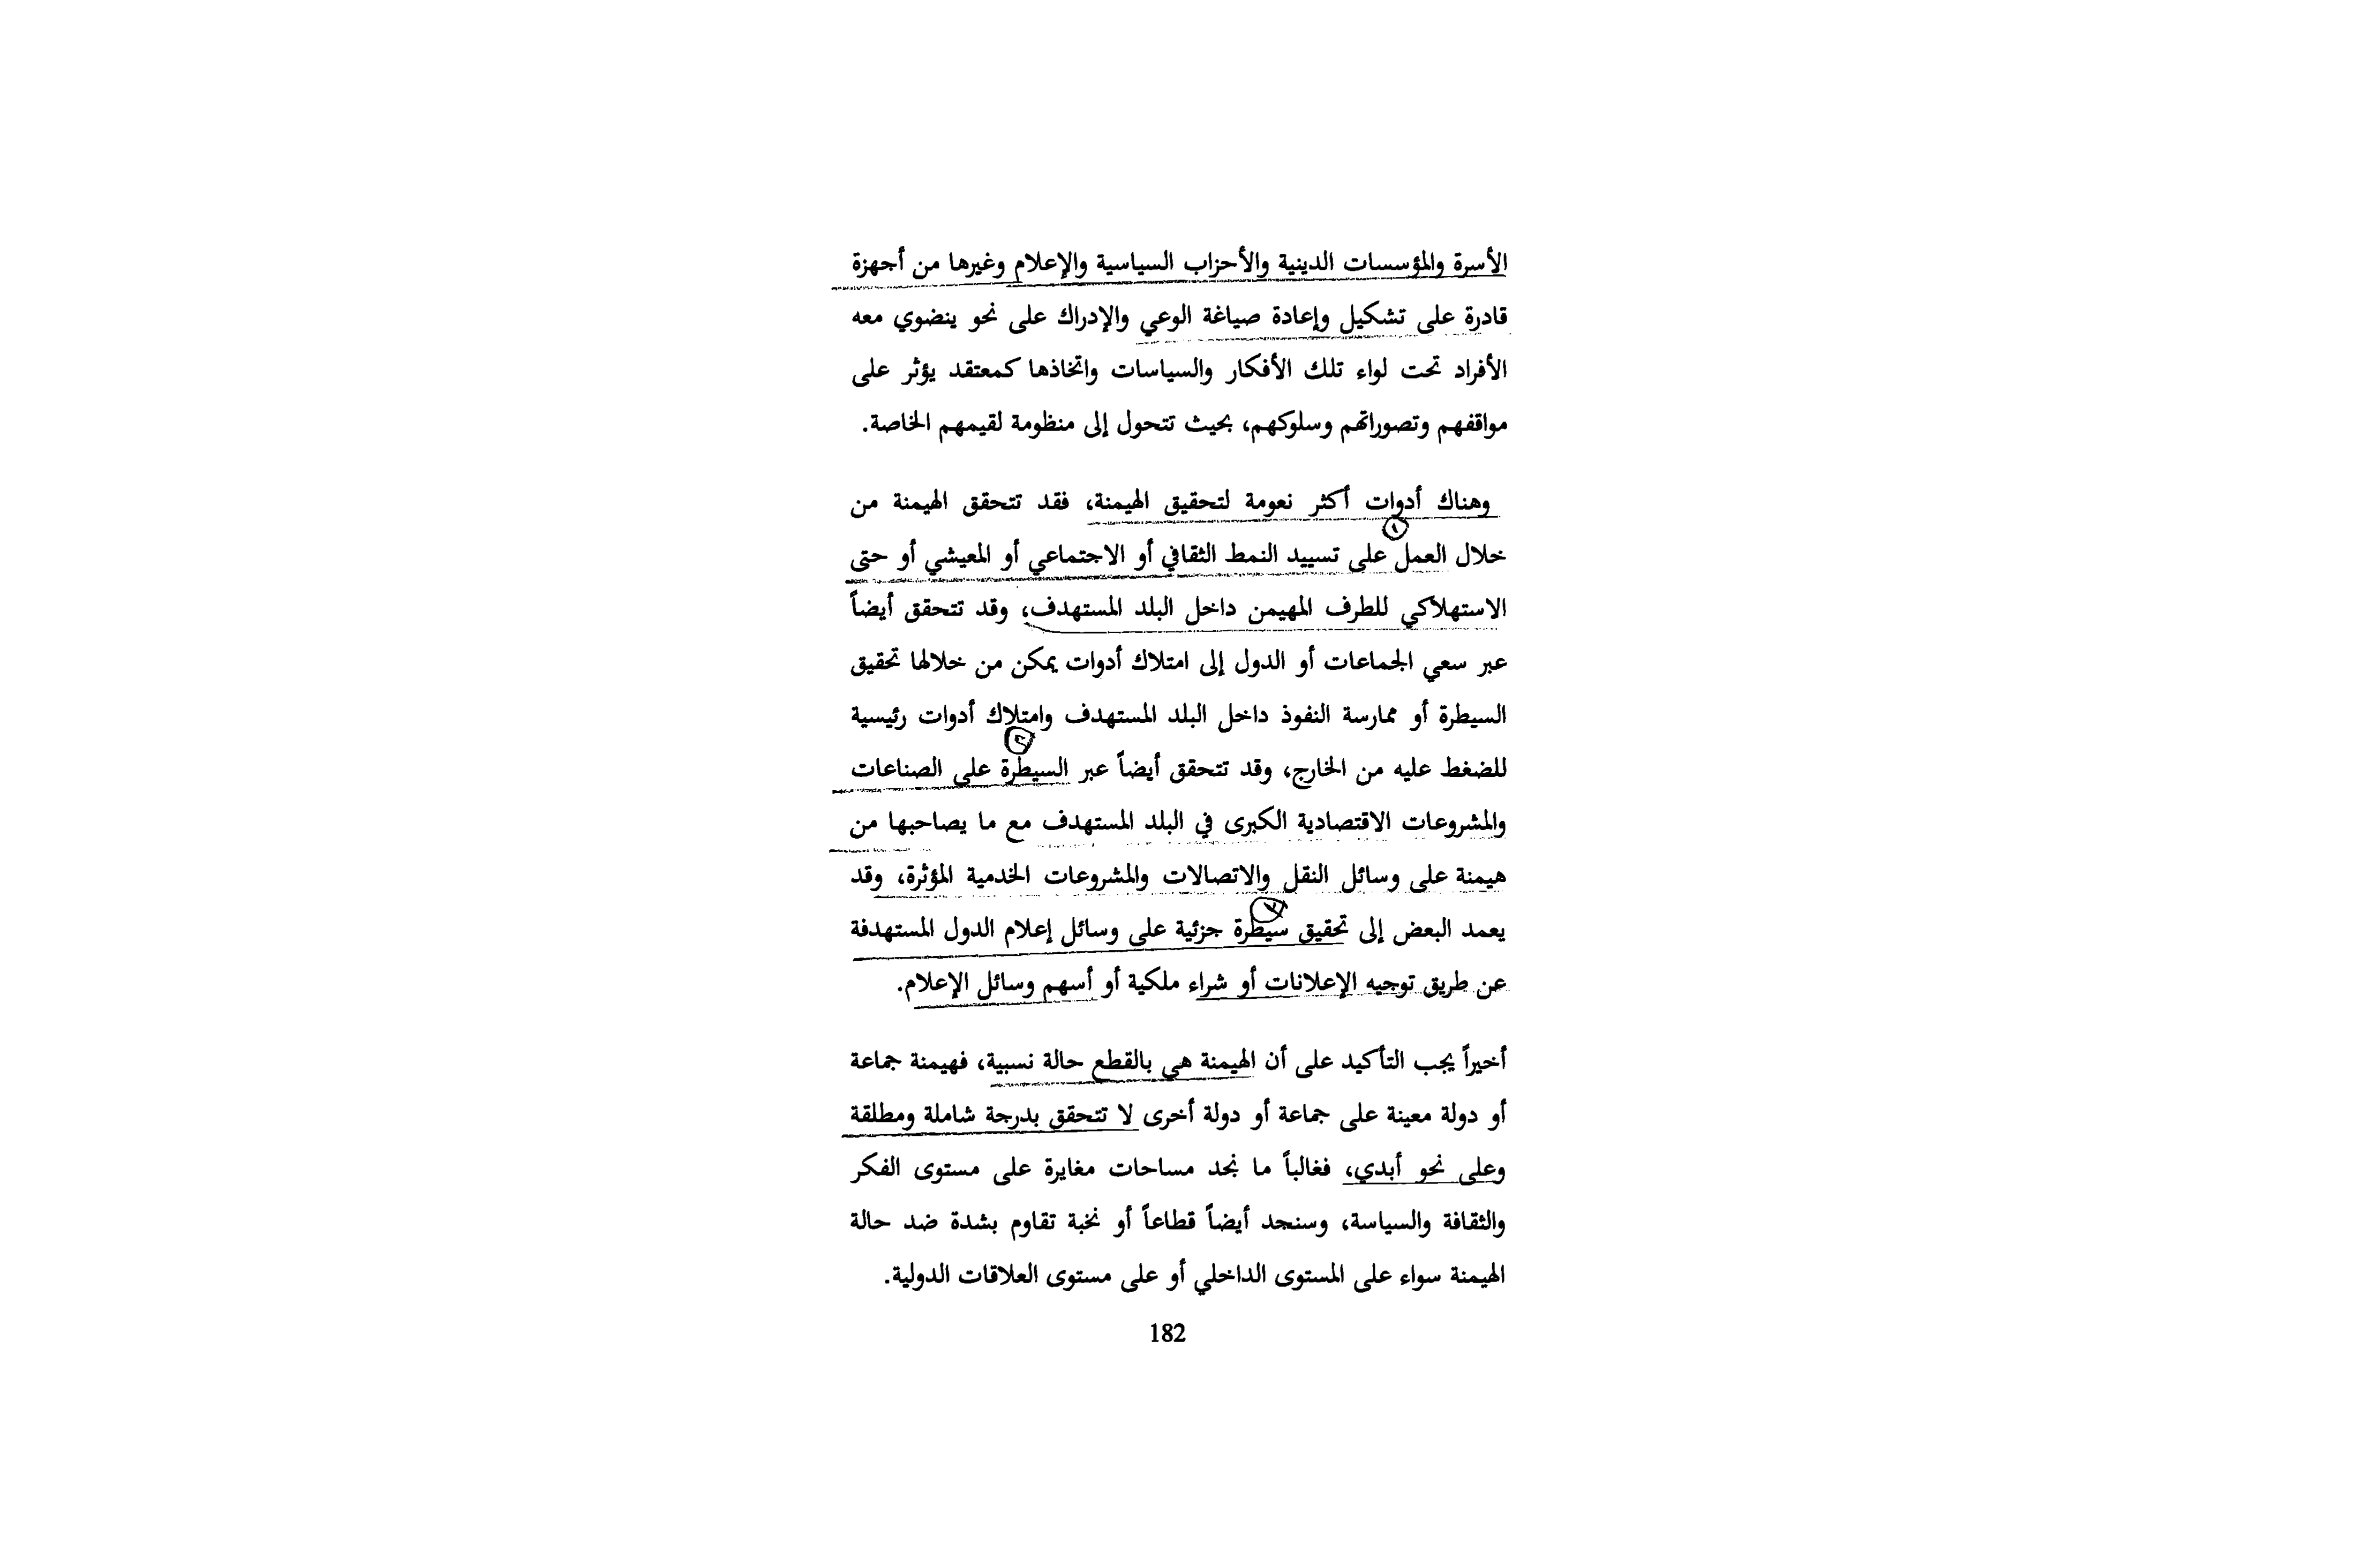 الأسرة والمؤسسات الدينية والأحزاب السياسية والإعلام وغيرها من أجهزة
قادرة على تشكيل وإعادة صياغة الوعي والإدراك على نحو ينضوي معه
الأفراد تحت لواء تلك الأفكار والسياسات واتخاذها كمعتقد يؤثر على
مواقفهم وتصوراتهم وسلوكهم، بحيث تتحول إلى منظومة لقيمهم الخاصة.
وهناك أدوات أكثر نعومة لتحقيق الهيمنة، فقد تتحقق الهيمنة من
١
خلال العمل على تسييد النمط الثقافي أو الاجتماعي أو المعيشي أو حتى
الاستهلاكي للطرف المهيمن داخل البلد المستهدف، وقد تتحقق أيضاً
عبر سعي الجماعات أو الدول إلى امتلاك أدوات يمكن من خلالها تحقيق
السيطرة أو ممارسة النفوذ داخل البلد المستهدف وامتلاك أدوات رئيسية
٢
للضغط عليه من الخارج، وقد تتحقق أيضاً عبر السيطرة على الصناعات
والمشروعات الاقتصادية الكبرى في البلد المستهدف مع ما يصاحبها من
هيمنة على وسائل النقل والاتصالات والمشروعات الخدمية المؤثرة، وقد
٣
يعمد البعض إلى تحقيق سيطرة جزئية على وسائل إعلام الدول المستهدفة
عن طريق توجيه الإعلانات أو شراء ملكية أو أسهم وسائل الإعلام.
أخيراً يجب التأكيد على أن الهيمنة هي بالقطع حالة نسبية، فهيمنة جماعة
أو دولة معينة على جماعة أو دولة أخرى لا تتحقق بدرجة شاملة ومطلقة
وعلى نحو أبدي، فغالباً ما نجد مساحات مغايرة على مستوى الفكر
والثقافة والسياسة، وسنجد أيضاً قطاعاً أو نخبة تقاوم بشدة ضد حالة
الهيمنة سواء على المستوى الداخلي أو على مستوى العلاقات الدولية.
182